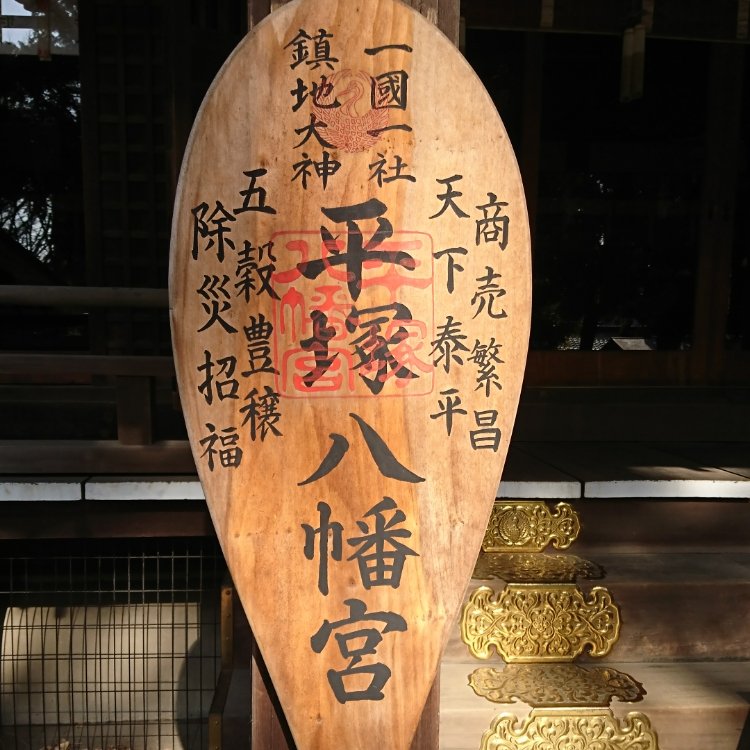 一國一社
鎮地大神
商売繁昌
天下泰平
平塚八幡宮
五穀豊穣
除災招福
平塚
八幡宮